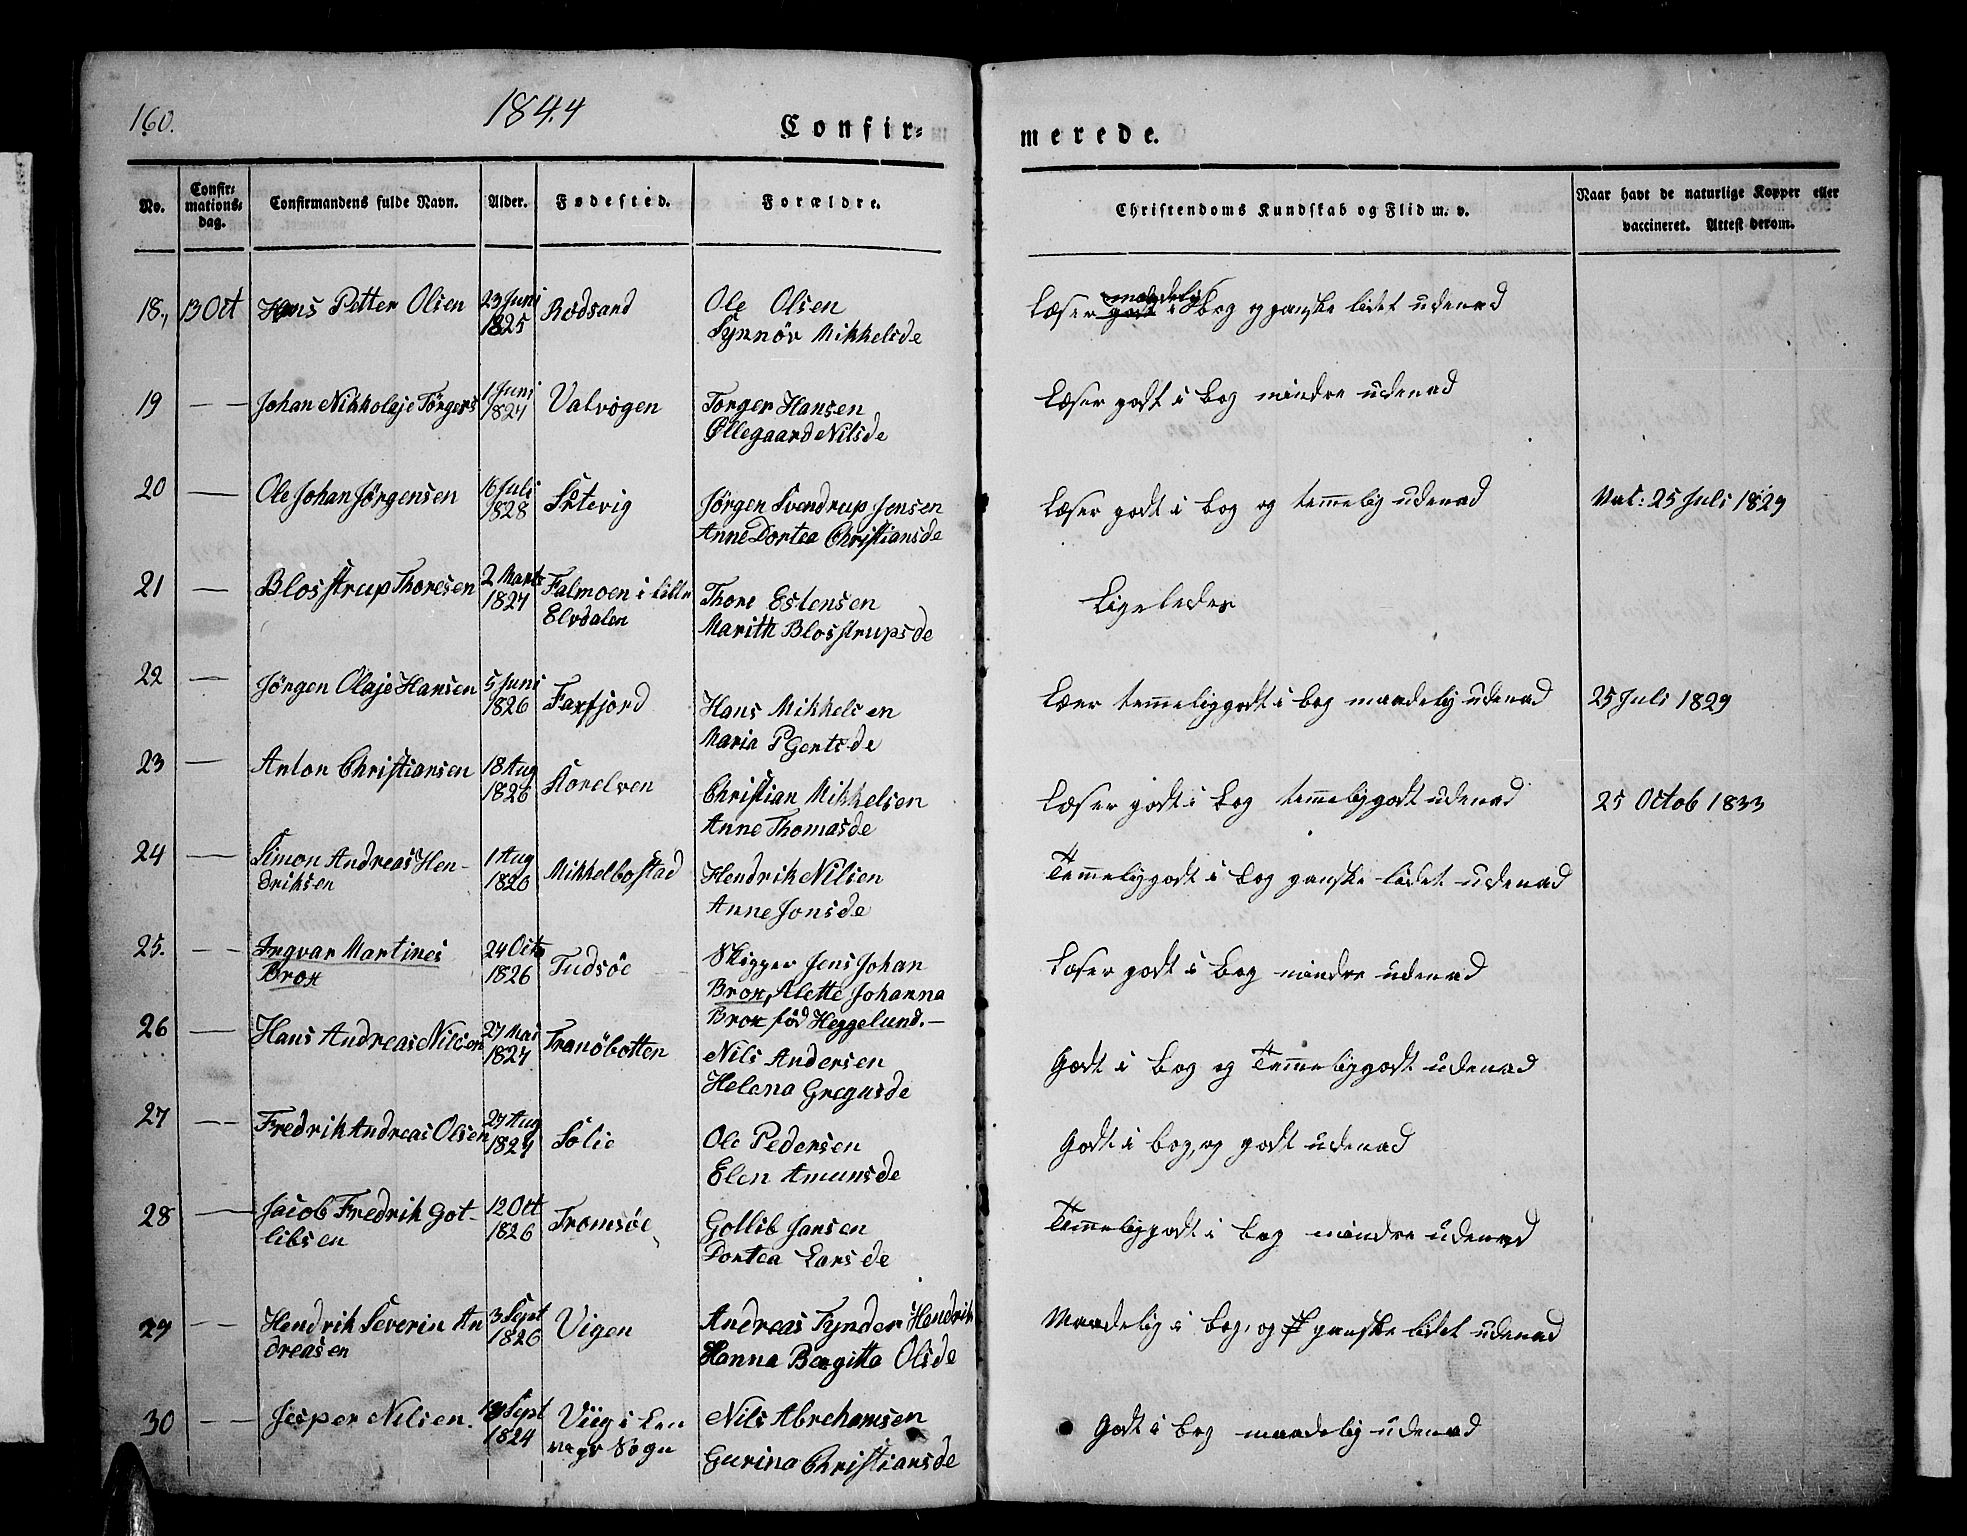 160.
1844
Confir=
merede.
No.
Confir=
mations=
dag.
Confirmandens fulde Navn.
Alder.
Fødested.
Forældre.
Christendoms Kundskab og Flid m. v.
Naar havt de naturlige Kopper eller
vaccineret. Attest derom.
18., 13 Oct Hans Petter Olsen 23 Juni Rødsand Ole Olsen Læser godt maadelig i Bog og ganske lidet udenad
1825 Synnöv Mikkelsde
19 — — Johan Nikkolaje Törgers 1 Juni Valvogen Torger Hansen Læser godt i bog mindre udenad
1827 Øllegaard Nilsde
20 — Ole Johan Jörgensen 16 Juli Jörgen Svendrup Jensen Læser godt i bog og temmelig udenad Nat: 25 Juli 1829
1828 Anne Dortea Christiansde
21 — Blosstrup Thoresen 2 Marts Falmoen i Lille Thore Estensen Ligeledes
1827 Elvdalen Marith Blosstrupsde
22 — Jörgen Olaje Hansen 5 Juni Faxfjord Hans Mikkelsen Læser temmelig godt i bog maadelig udenad 25 Juli 1829
1826 Maria PGentsde
23 — Anton Christiansen 18 Aug Korelven Christian Mikkelsen Læser godt i bog temmelig godt udenad 25 Octob 1833
1826 Anne Thomasde
24 — Simon Andreas Hen- 1 Aug Mikkelbostad Hendrik Nilsen Temmelig godt i bog ganske lidet udenad
driksen 1820 Anne Jonsde
25. — — Ingvar Martines 24 Octo Tudsöe Skipper Jens Johan Læser godt i bog mindre udenad
Brox 1826 Brox, Alette Johanna
Brox föd Heggelund.—
26 — Hans Andreas Nilsen 27 Mai Tranöbotten Nils Andersen Godt i bog og Temmelig godt udenad
1827 Helena Gregusde
27 — — Fredrik Andreas Olsen 27 Aug Solie Ole Pedersen Godt i bog, og godt udenad
1829 Elen Amunsde
28 — Jacob Fredrik Got- 12 Oct Tromsöe Gollib Jansen Temmelig godt i bog mindre udenad
libsen 1826 Dortea Larsde
29 — — Hendrik Severin An 3 Sept Vigen Andreas Fynder Hendrik Maadelig i bog, og ganske lidet udenad
dreasen 1826 Hanna Bergitta Olsde
30 — — Jesper Nilsen. Sept Viig i Len Nils Abrehamsen Godt i bog maadelig udenad
1824 vigs Sogn Gurina Christiansde